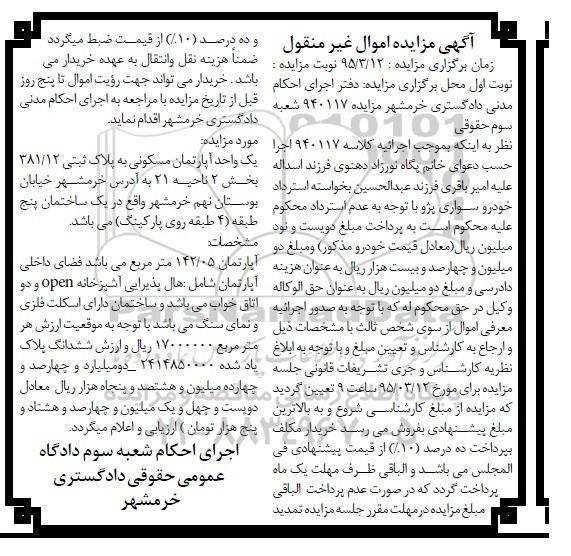 آگهی مزایده اموال غیر منقول
زمان برگزاری مزایده : ۹۵/۳/۱۲ نوبت مزایده :
نوبت اول محل برگزاری مزایده: دفتر اجرای احکام
مدنی دادگستری خرمشهر مزایده ۹۴۰۱۱۷ شعبه
سوم حقوقی
نظر به اینکه بموجب اجرائیه کلاسه ۹۴۰۱۱۷ اجرا
حسب دعوای خانم پگاه نورزاد دهنوی فرزند اسداله
علیه امیر باقری فرزند عبدالحسین بخواسته استرداد
خودرو سواری پژو با توجه به عدم استرداد محکوم
علیه محکوم است به پرداخت مبلغ دویست و نود
میلیون ریال(معادل قیمت خودرو مذکور) ومبلغ دو
میلیون و چهارصد و بیست هزار ریال به عنوان هزینه
دادرسی و مبلغ دو میلیون ریال به عنوان حق الوکاله
وکیل در حق محکوم له که با توجه به صدور اجرائیه
معرفی اموال از سوی شخص ثالث با مشخصات ذیل
و ارجاع به کارشناس و تعیین مبلغ و با توجه به ابلاغ
نظریه کارشناس و جری تشریفات قانونی جلسه
مزایده برای مورخ ۹۵/۰۳/۱۲ ساعت ۹ تعیین گردید
که مزایده از مبلغ کارشناسی شروع و به بالاترین
مبلغ پیشنهادی بفروش می رسد خریدار مکلف
بپرداخت ده درصد (۱۰٪) از قیمت پیشنهادی فی
المجلس می باشد و الباقی ظرف مهلت یک ماه
پرداخت گردد که در صورت عدم پرداخت الباقی
مبلغ مزایده درمهلت مقرر جلسه مزایده تمدید
و ده درصد (۱۰٪) از قیمت ضبط میگردد
ضمناً هزینه نقل وانتقال به عهده خریدار می
باشد . خریدار می تواند جهت رؤیت اموال تا پنج روز
قبل از تاریخ مزایده با مراجعه به اجرای احکام مدنی
دادگستری خرمشهر اقدام نماید.
مورد مزایده:
یک واحد آپارتمان مسکونی به پلاک ثبتی ۳۸۱/۱۲
بخش ۲ ناحیه ۲۱ به آدرس خرمشهر خیابان
بوستان نهم خرمشهر واقع در یک ساختمان پنج
طبقه (۴ طبقه روی پارکینگ) می باشد.
مشخصات:
آپارتمان ۱۴۲/۰۵ متر مربع می باشد فضای داخلی
آپارتمان شامل :هال پذیرایی آشپزخانه open و دو
اتاق خواب می باشد و ساختمان دارای اسکلت فلزی
و نمای سنگ می باشد با توجه به موقعیت ارزش هر
متر مربع ۱۷۰۰۰۰۰۰ ریال و ارزش ششدانگ پلاک
یاد شده ۲۴۱۴۸۵۰۰۰۰ _دومیلیارد و چهارصد و
چهارده میلیون و هشتصد و پنجاه هزار ریال معادل
دویست و چهل و یک میلیون و چهارصد و هشتاد و
پنج هزار تومان ) ارزیابی و اعلام میگردد.
اجرای احکام شعبه سوم دادگاه
عمومی حقوقی دادگستری
خرمشهر